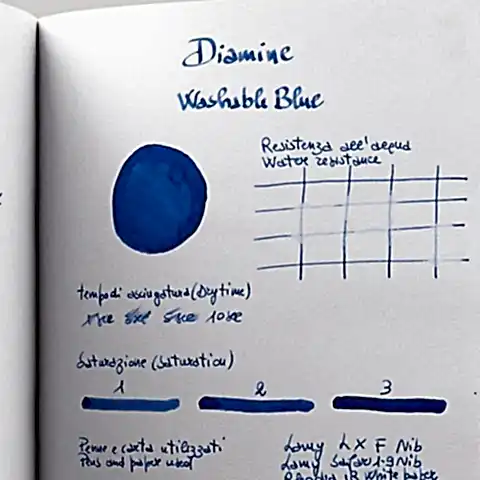 Diamine
Washable Blue
Resistenza all'acqua
Water resistance
tempo di asciugatura (Dry time)
10sec
Saturazione (Saturation)
1 2 3
Penne e carta utilizzati
Pens and paper used
Lamy LX F Nib
Lamy Safari 1.9 Nib
White paper